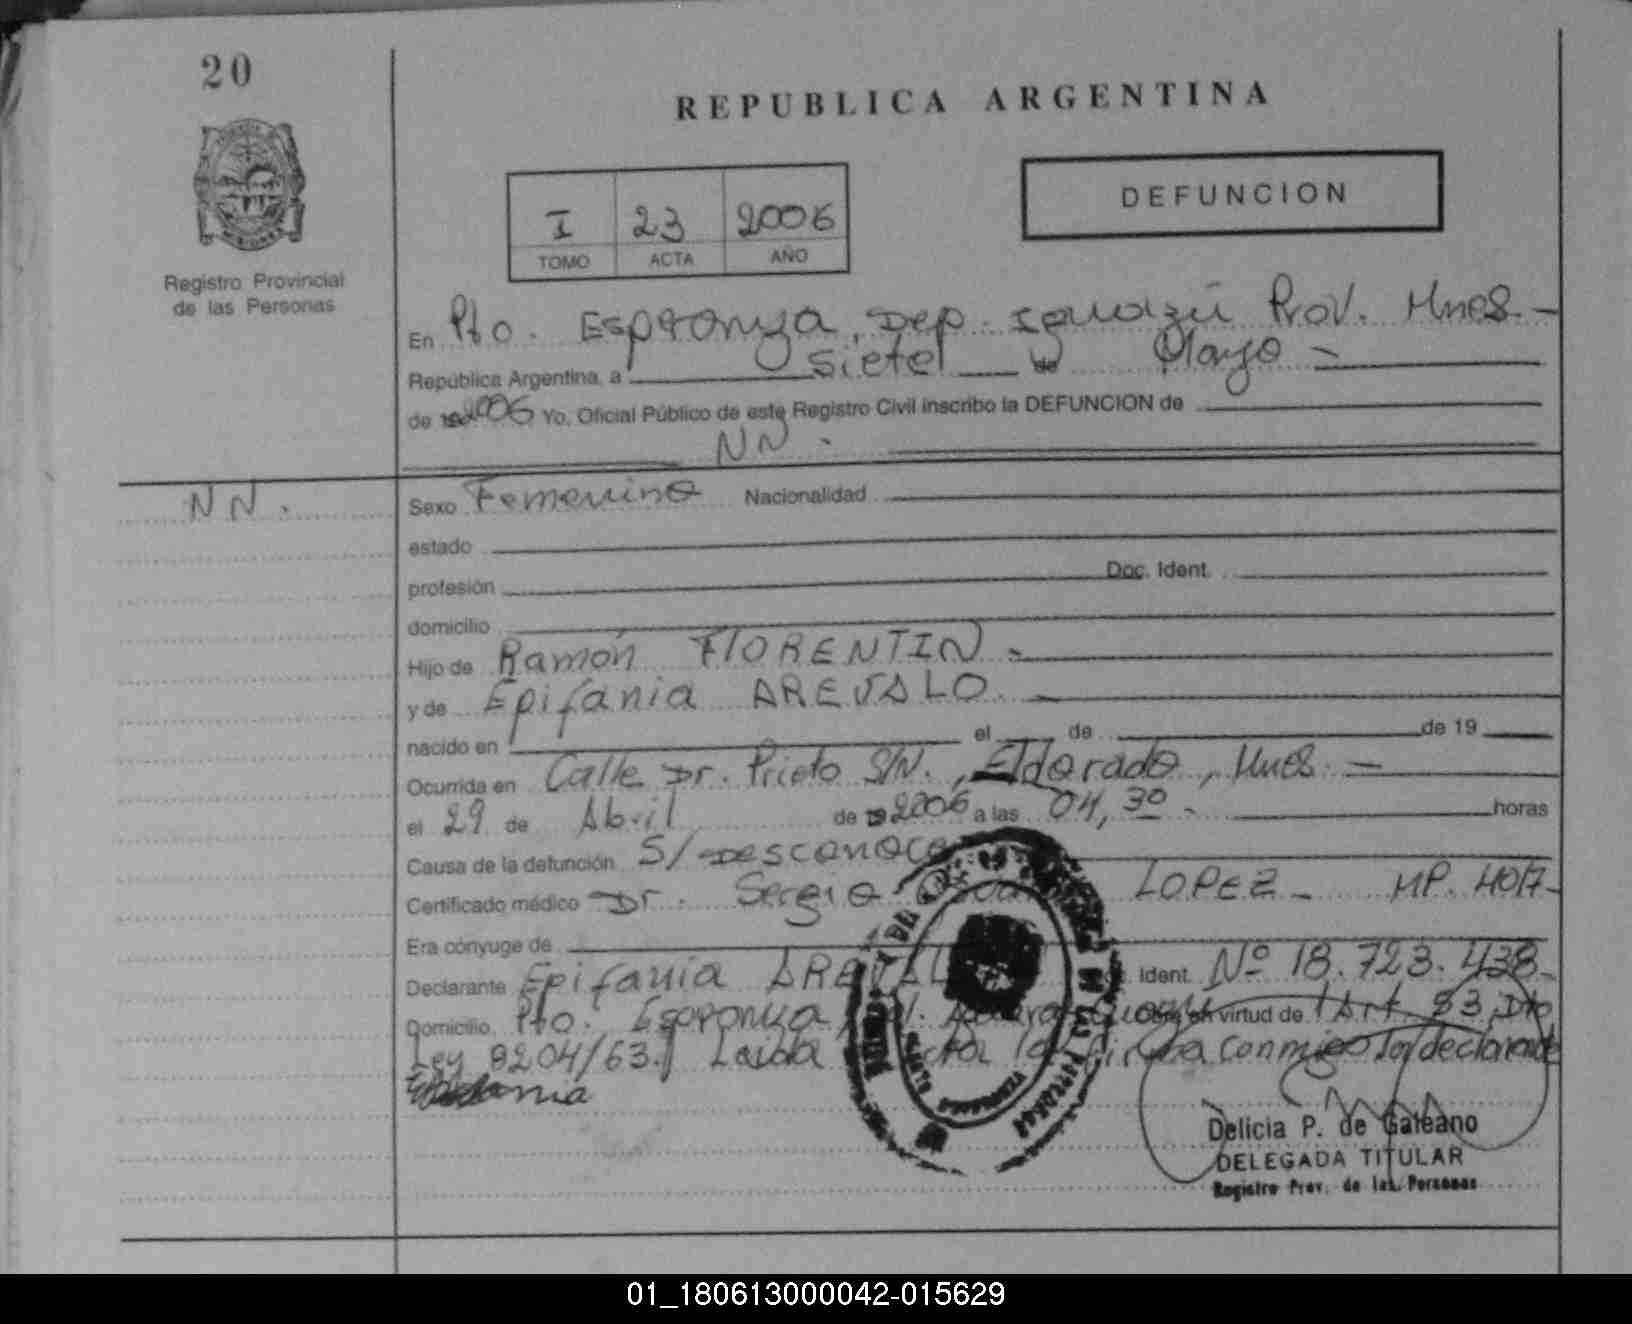 20
REPUBLICA ARGENTINA
I 23 2006
TOMO ACTA AÑO
DEFUNCION
Registro Provincial
de las Personas
En Pto. Esperanza, Dep. Iguazú Prov. Mnes.-
República Argentina, a siete de Mayo -
de 2006 Yo, Oficial Público de este Registro Civil inscribo la DEFUNCION de
NN.
NN.
Sexo Femenino Nacionalidad
estado
profesión Doc. Ident.
domicilio
Hijo de Ramón FlORENTIN.-
y de Epifania AREVALO. -
nacido en el de de 19
Ocurrida en Calle Dr. Prieto S/N., Eldorado, Mnes. -
el 29 de Abril de 2006 a las 04,30 - horas
Causa de la defunción S/
Certificado médico Dr. Sergio LOPEZ - MP. 4017-
Era cónyuge de
Declarante Epifania AREVALO Ident. Nº 18.723.438-
Domicilio Pto. Esperanza, virtud de Art. 83, Dto
Ley 8204/63. Leida acta la firma conmigo la declarante
Delicia P. de Galeano
DELEGADA TITULAR
Registro Prov. de las Personas
01_180613000042-015629